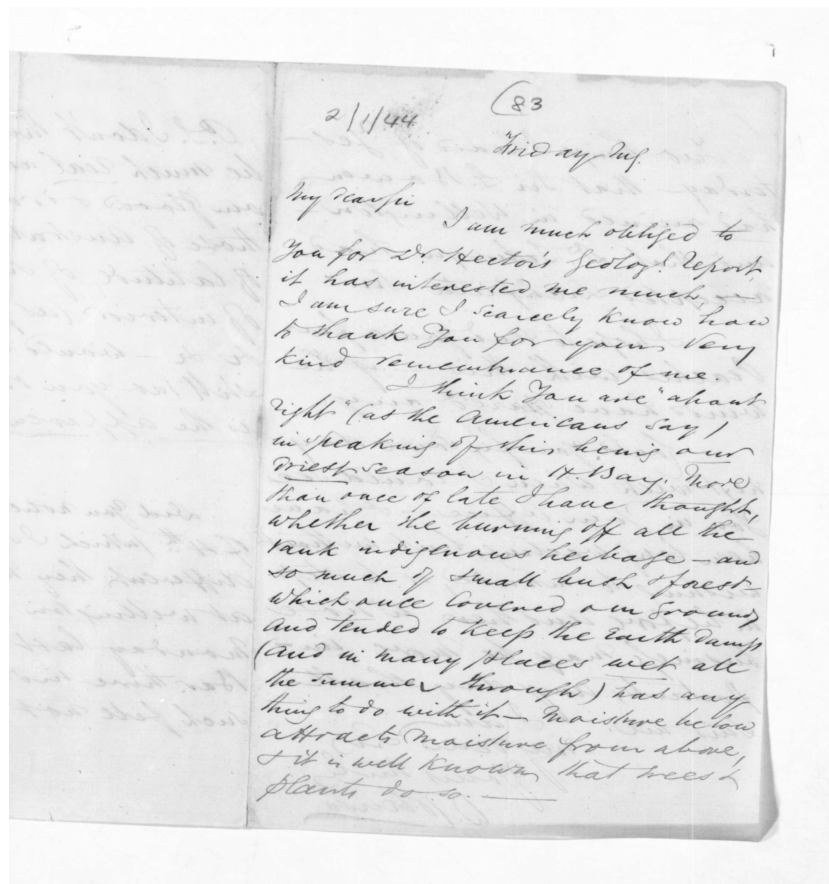 (83
2/1/44
Friday Mg.
My dear Sir
I am much obliged to
you for Dr Hector's Geolog! report,
it has interested me much,
I am sure I scarcely know how
to thank you for yours very
kind remembrance of me.
I think you are "about
right" (as the Americans say)
in speaking of this being our
driest season in H. Bay. More
than once of late I have thought,
whether the burning off all the
rank indigenous herbage — and
so much of small bush & forest
which once covered our ground,
and tended to keep the Earth damp
(and in many places wet all
the summer through) has any
thing to do with it — moisture below
attracts moisture from above,
& it is well known that trees &
plants do so. —